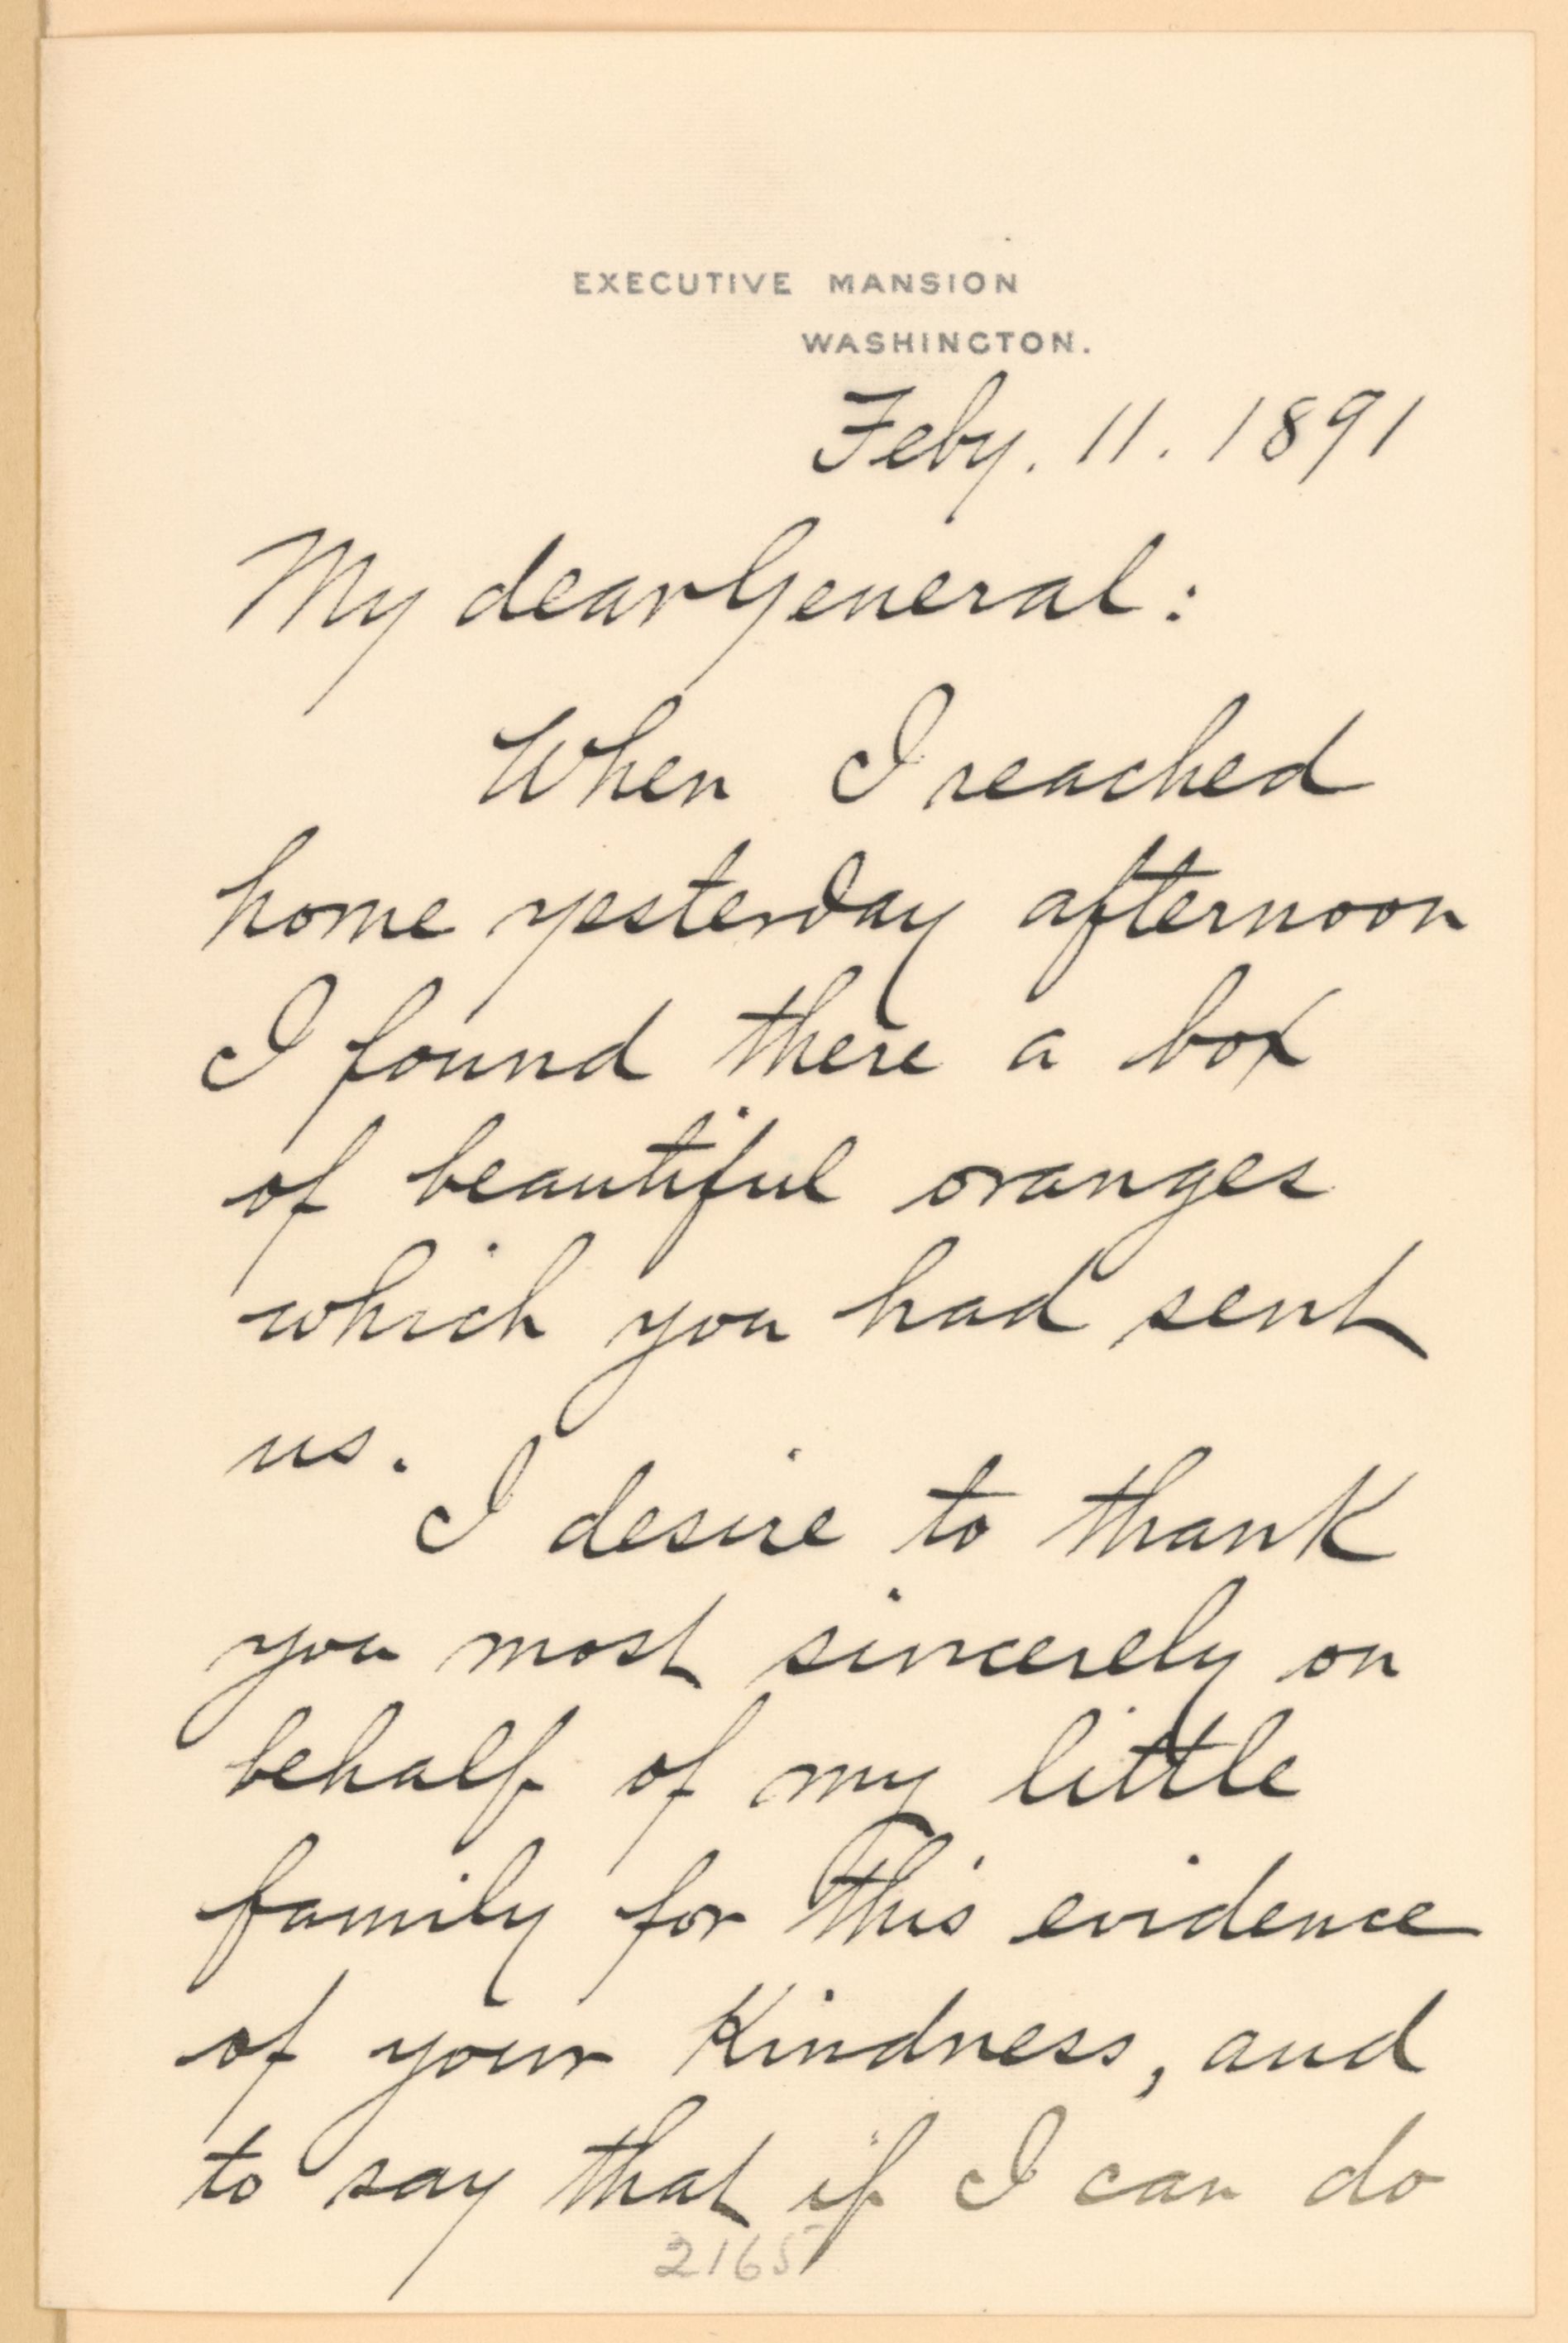 EXECUTIVE MANSION
WASHINGTON.
Feby. 11. 1891
My dear General:
When I reached
home yesterday afternoon
I found there a box
of beautiful oranges
which you had sent
us.
I desire to thank
you most sincerely on
behalf of my little
family for this evidence
of your kindness, and
to say that if I can do
2165